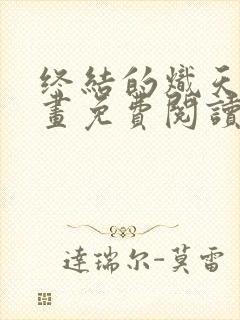 终结的炽天
畫免費閱讀
達瑞尔-莫雷